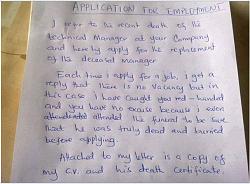 APPLICATION FOR EMPLOYMENT
I refer to the recent death of the
technical Manager at your Company
and hereby apply for the replacement
of the deceased manager
Each time i apply for a job, i get a
reply that there is no vacancy but in
this case i have caught you red-handed
and you have no excuse because i even
attended the funeral to be sure
that he was truly dead and buried
before applying.
Attached to my letter is a copy of
my C.V. and his death certificate.